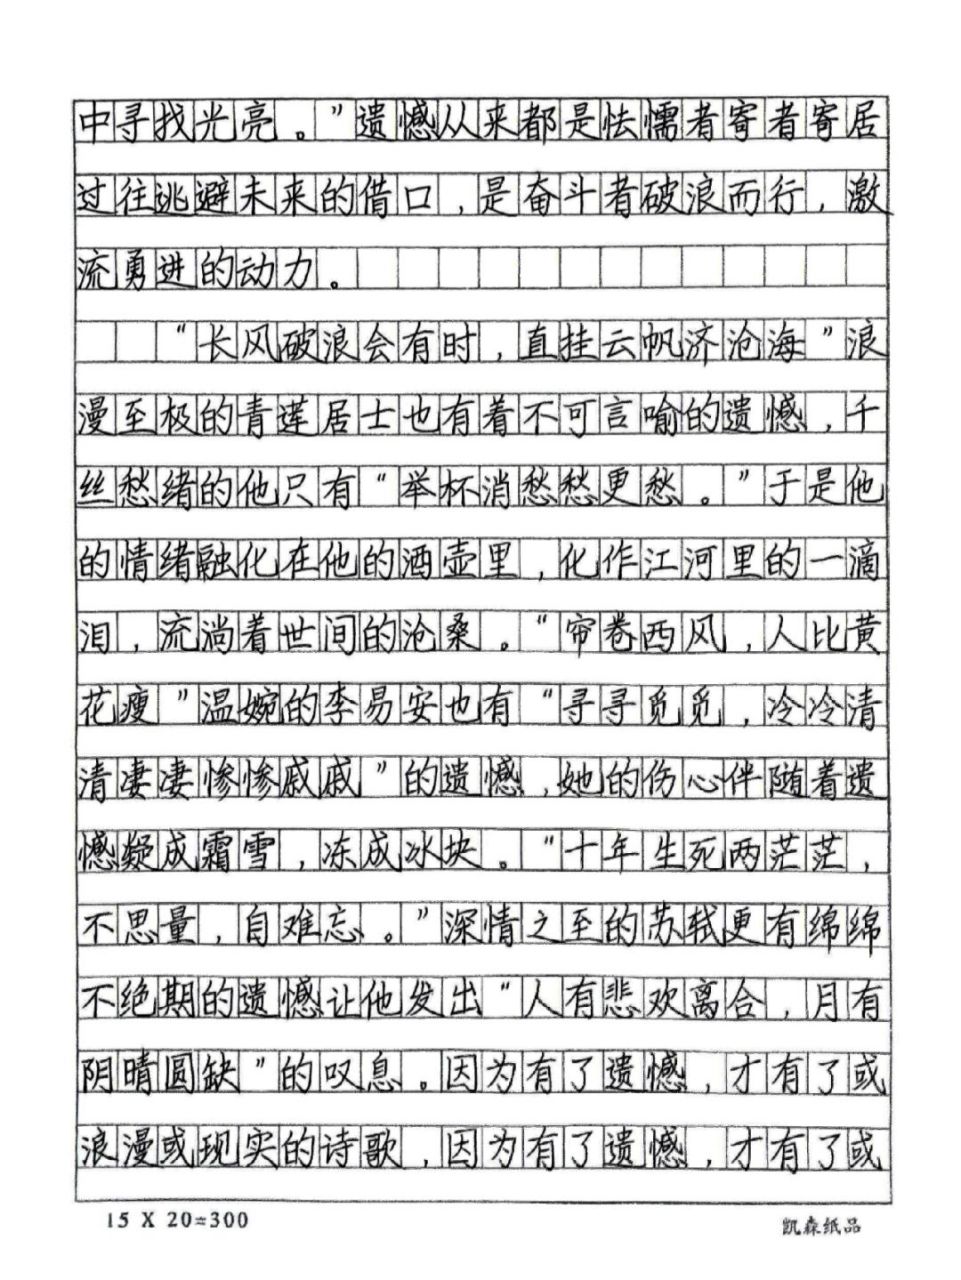 中寻找光亮。”遗憾从来都是怯懦者寄者寄居
过往逃避未来的借口，是奋斗者破浪而行，激
流勇进的动力。
“长风破浪会有时，直挂云帆济沧海”浪
漫至极的青莲居士也有着不可言喻的遗憾，千
丝愁绪的他只有“举杯消愁愁更愁。”于是他
的情绪融化在他的酒壶里，化作江河里的一滴
泪，流淌着世间的沧桑。“帘卷西风，人比黄
花瘦”温婉的李易安也有“寻寻觅觅，冷冷清
清凄凄惨惨戚戚”的遗憾，她的伤心伴随着遗
憾凝成霜雪，冻成冰块。“十年生死两茫茫，
不思量，自难忘。”深情之至的苏轼更有绵绵
不绝期的遗憾让他发出“人有悲欢离合，月有
阴晴圆缺”的叹息。因为有了遗憾，才有了或
浪漫或现实的诗歌，因为有了遗憾，才有了或
15 X 20=300 凯森纸品